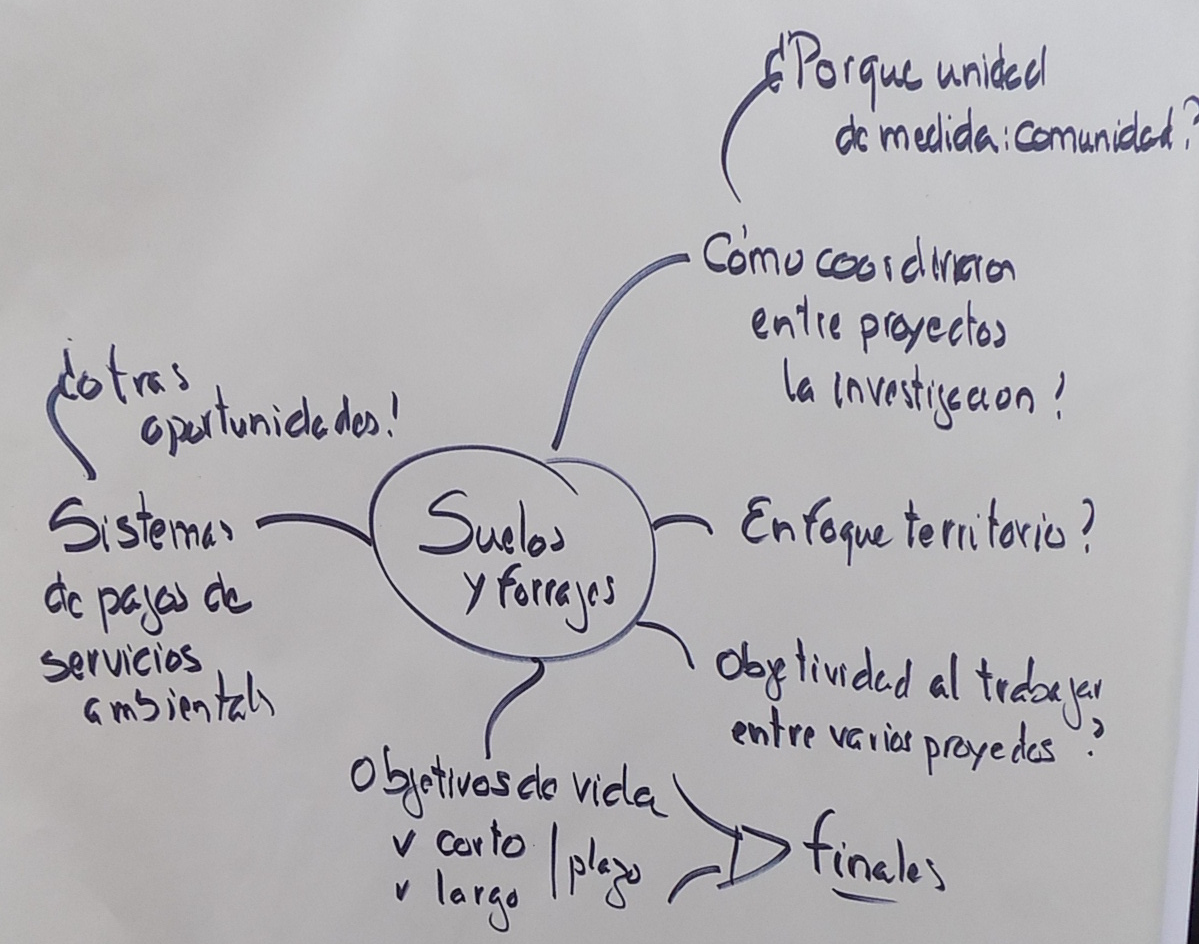 ¿Porque unidad
de medida: comunidad?
Cómo coordinaron
entre proyectos
la investigacion?
¿otras
oportunidades!
Sistemas
de pagos de
servicios
ambientals
Suelos
y forrajes
Enfoque territorio?
Objetividad al trabajar
entre varios proyectos?
Objetivos de vida
v corto
v largo
plazo
finales